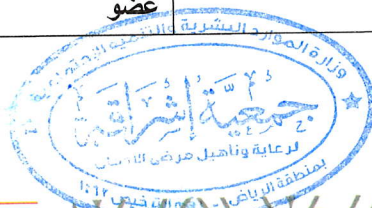 عضو
وزارة الموارد البشرية والتنمية الاجتماعية
جمعية إشراقة
لرعاية وتأهيل مرضى
بمنطقة الرياض